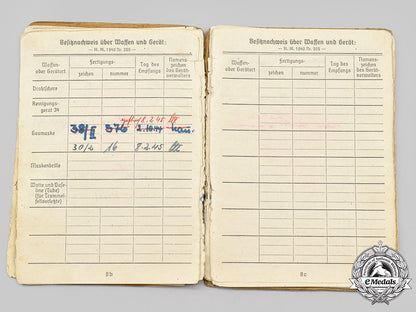 Besitznachweis über Waffen und Gerät:
— H. M. 1940 Nr. 205 —
Waffen- oder Geräteart
Fertigungs-
zeichen nummer
Tag des Empfangs
Namenszeichen des Geräteverwalters
Drahtschere
Reinigungs-
gerät 34
8.2.45
Gasmaske 38/II 376
30/2 16 8.2.45
Maskenbrille
Watte und Vase-
line (Tube)
(für Trommel-
fellverletzte)
8b
Besitznachweis über Waffen und Gerät:
— H. M. 1940 Nr. 205 —
Waffen- oder Geräteart
Fertigungs-
zeichen nummer
Tag des Empfangs
Namenszeichen des Geräteverwalters
8c
eMedals